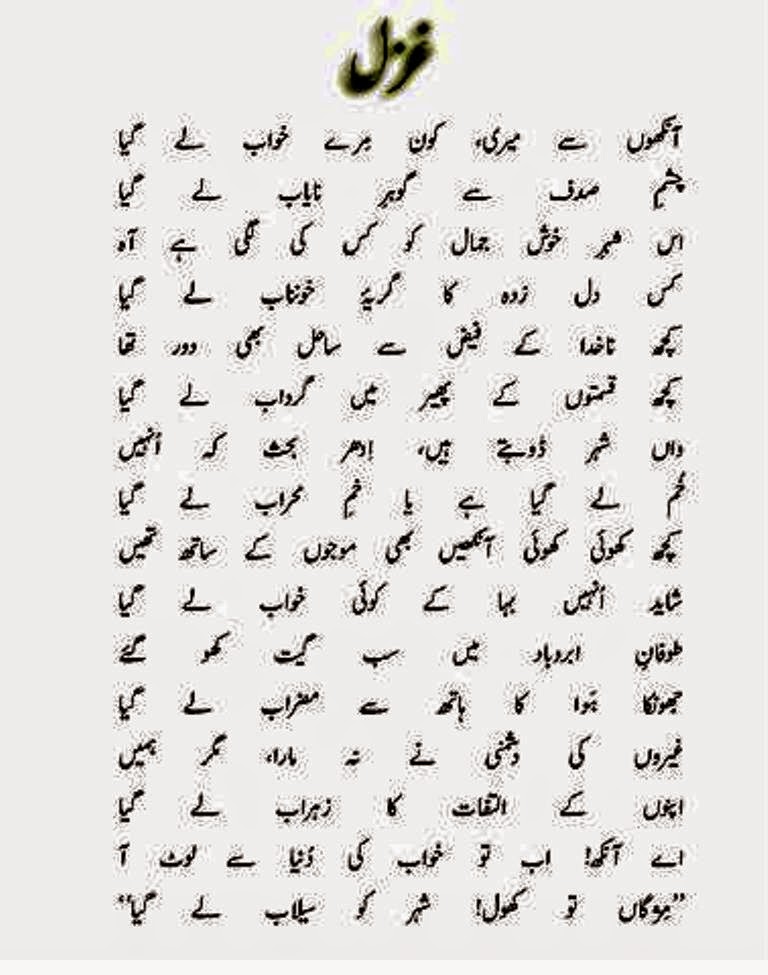 غزل
آنکھوں سے میری، کون مرے خواب لے گیا
چشمِ صدف سے گوہرِ نایاب لے گیا
اس شہرِ خوش جمال کو کس کی لگی ہے آہ
کس دل زدہ کا گریۂ خونناب لے گیا
کچھ ناخدا کے فیض سے ساحل بھی دور تھا
کچھ قسمتوں کے پھیر میں گرداب لے گیا
واں شہر ڈوبتے ہیں، اِدھر بحث کہ اُنہیں
خُم لے گیا ہے یا خمِ محراب لے گیا
کچھ کھوئی کھوئی آنکھیں بھی موجوں کے ساتھ تھیں
شاید اُنہیں بہا کے کوئی خواب لے گیا
طوفانِ ابروباد میں سب گیت کھو گئے
جھونکا ہَوا کا ہاتھ سے مضراب لے گیا
غیروں کی دشمنی نے نہ مارا، مگر ہمیں
اپنوں کے التفات کا زہراب لے گیا
اے آنکھ! اب تو خواب کی دُنیا سے لوٹ آ
”مژگاں تو کھول! شہر کو سیلاب لے گیا“